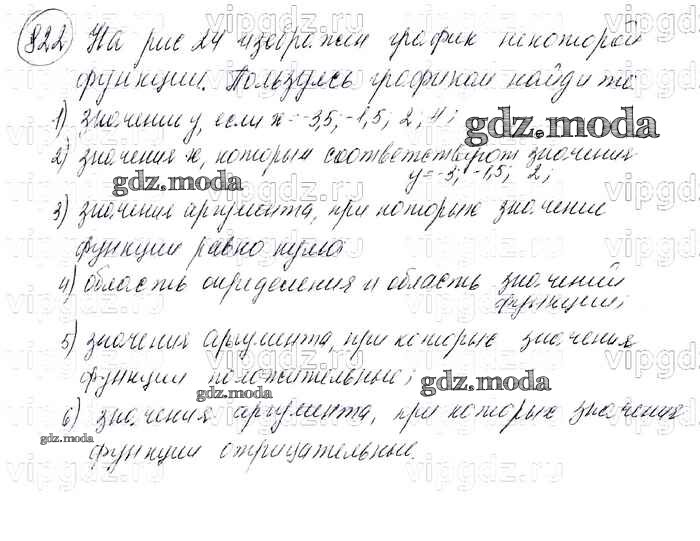 822) На рис 24 изображен график некоторой
функции. Пользуясь графиком найдите
1) значения y, если x = -3,5; -1,5; 2; 4;
gdz.moda
2) значения x, которым соответствуют значения
y = -3; -1,5; 2;
gdz.moda
3) значения аргумента, при которых значение
функции равно нулю
4) область определения и область значений
функции;
5) значения аргумента, при которые значения
функции положительные;
gdz.moda
gdz.moda
6) значения аргумента, при которые значения
gdz.moda
функции отрицательные.
vipgdz.ru